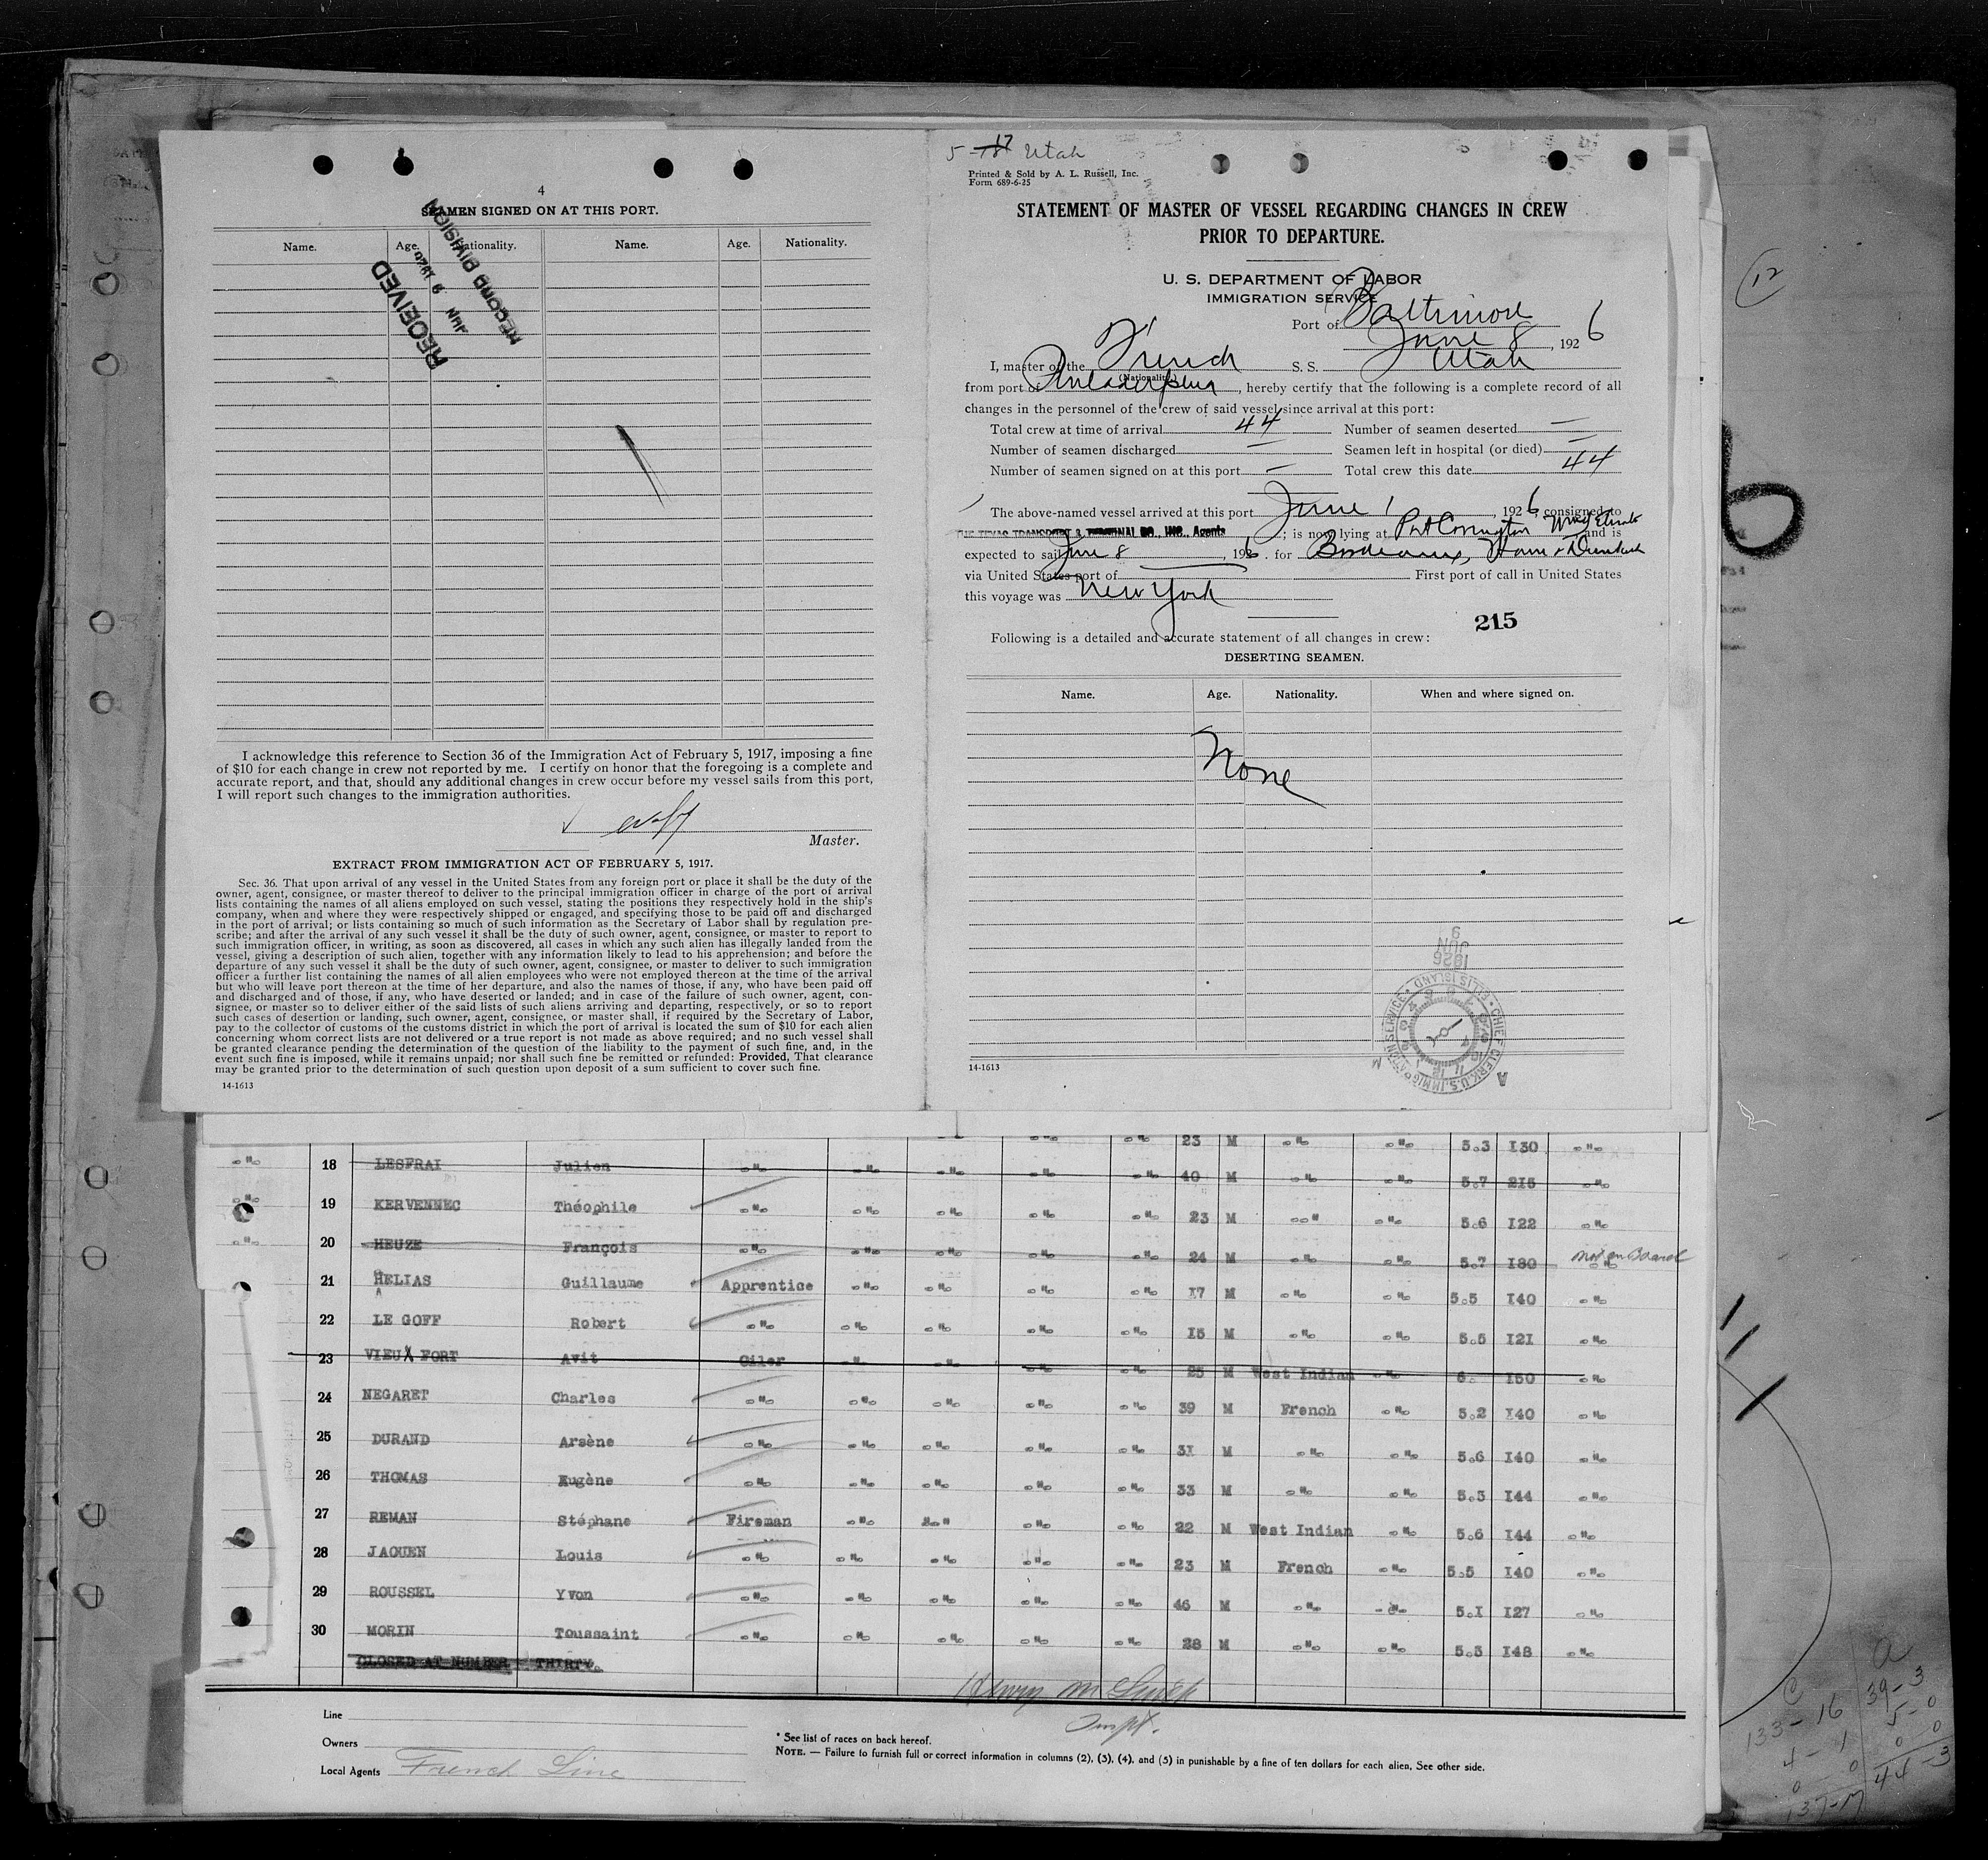 4
SEAMEN SIGNED ON AT THIS PORT.
Name. Age. Nationality. Name. Age. Nationality.
RECEIVED
JUN 9 1926
RECORD DIVISION
I acknowledge this reference to Section 36 of the Immigration Act of February 5, 1917, imposing a fine
of $10 for each change in crew not reported by me. I certify on honor that the foregoing is a complete and
accurate report, and that, should any additional changes in crew occur before my vessel sails from this port,
I will report such changes to the immigration authorities.
Master.
EXTRACT FROM IMMIGRATION ACT OF FEBRUARY 5, 1917.
Sec. 36. That upon arrival of any vessel in the United States from any foreign port or place it shall be the duty of the
owner, agent, consignee, or master thereof to deliver to the principal immigration officer in charge of the port of arrival
lists containing the names of all aliens employed on such vessel, stating the positions they respectively hold in the ship's
company, when and where they were respectively shipped or engaged, and specifying those to be paid off and discharged
in the port of arrival; or lists containing so much of such information as the Secretary of Labor shall by regulation pre-
scribe; and after the arrival of any such vessel it shall be the duty of such owner, agent, consignee, or master to report to
such immigration officer, in writing, as soon as discovered, all cases in which any such alien has illegally landed from the
vessel, giving a description of such alien, together with any information likely to lead to his apprehension; and before the
departure of any such vessel it shall be the duty of such owner, agent, consignee, or master to deliver to such immigration
officer a further list containing the names of all alien employees who were not employed thereon at the time of the arrival
but who will leave port thereon at the time of her departure, and also the names of those, if any, who have been paid off
and discharged and of those, if any, who have deserted or landed; and in case of the failure of such owner, agent, con-
signee, or master so to deliver either of the said lists of such aliens arriving and departing, respectively, or so to report
such cases of desertion or landing, such owner, agent, consignee, or master shall, if required by the Secretary of Labor,
pay to the collector of customs of the customs district in which the port of arrival is located the sum of $10 for each alien
concerning whom correct lists are not delivered or a true report is not made as above required; and no such vessel shall
be granted clearance pending the determination of the question of the liability to the payment of such fine, and, in the
event such fine is imposed, while it remains unpaid; nor shall such fine be remitted or refunded: Provided, That clearance
may be granted prior to the determination of such question upon deposit of a sum sufficient to cover such fine.
14-1613
5-18 17 Utah
Printed & Sold by A. L. Russell, Inc.
Form 689-6-25
STATEMENT OF MASTER OF VESSEL REGARDING CHANGES IN CREW
PRIOR TO DEPARTURE.
U. S. DEPARTMENT OF LABOR
IMMIGRATION SERVICE
Port of Baltimore
June 8, 1926
I, master of the French S. S. Utah
(Nationality)
from port of Philadelphia, hereby certify that the following is a complete record of all
changes in the personnel of the crew of said vessel since arrival at this port:
Total crew at time of arrival 44 Number of seamen deserted —
Number of seamen discharged — Seamen left in hospital (or died) —
Number of seamen signed on at this port — Total crew this date 44
The above-named vessel arrived at this port June 1, 1926, consigned to
THE TEXAS TRANSPORT & TERMINAL CO., INC., Agents; is now lying at Port Covington and is
expected to sail June 8, 1926. for Bordeaux, Havre & Dunkirk
via United States port of — First port of call in United States
this voyage was New York
215
Following is a detailed and accurate statement of all changes in crew:
DESERTING SEAMEN.
Name. Age. Nationality. When and where signed on.
None
JUN 9 1926
CHIEF CLERK, U.S. IMMIGRATION SERVICE • ELLIS ISLAND •
14-1613
12
23 M -"- -"- 5.3 130 -"-
-"- 18 LESFRAI Julien -"- -"- -"- -"- -"- 40 M -"- -"- 5.7 215 -"-
-"- 19 KERVENNEC Théophile -"- -"- -"- -"- -"- 23 M -"- -"- 5.6 122 -"-
-"- 20 HEUZE François -"- -"- -"- -"- -"- 24 M -"- -"- 5.7 180 -"- Not on Board
21 HELIAS Guillaume Apprentice -"- -"- -"- -"- 17 M -"- -"- 5.5 140 -"-
22 LE GOFF Robert -"- -"- -"- -"- -"- 15 M -"- -"- 5.5 121 -"-
23 VIEUX FORT Avit Oiler -"- -"- -"- -"- 25 M West Indian -"- 6. 150 -"-
24 NEGARET Charles -"- -"- -"- -"- -"- 39 M French -"- 5.2 140 -"-
25 DURAND Arsène -"- -"- -"- -"- -"- 31 M -"- -"- 5.6 140 -"-
26 THOMAS Eugène -"- -"- -"- -"- -"- 33 M -"- -"- 5.3 144 -"-
27 REMAN Stéphane Fireman -"- -"- -"- -"- 22 M West Indian -"- 5.6 144 -"-
28 JAOUEN Louis -"- -"- -"- -"- -"- 23 M French -"- 5.5 140 -"-
29 ROUSSEL Yvon -"- -"- -"- -"- -"- 46 M -"- -"- 5.1 127 -"-
30 MORIN Toussaint -"- -"- -"- -"- -"- 28 M -"- -"- 5.5 148 -"-
CLOSED AT NUMBER THIRTY.
Inspt.
Line
Owners
Local Agents French Line
* See list of races on back hereof.
NOTE. — Failure to furnish full or correct information in columns (2), (3), (4), and (5) in punishable by a fine of ten dollars for each alien. See other side.
C a
133-16 39-3
4-1 5-0
0 0 0 0
137-17 44-3